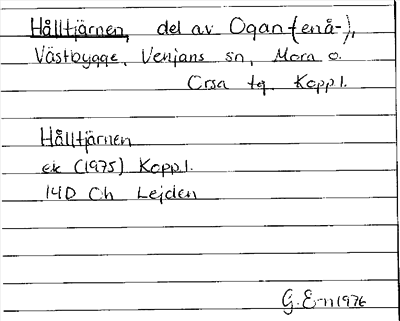 Hålltjärnen, del av Ogan (enå-),
Västbygge, Venjans sn, Mora o.
Orsa tg. Koppl.
Hålltjärnen
ek (1975) Koppl.
14D Oh Lejden
G. E-n 1976